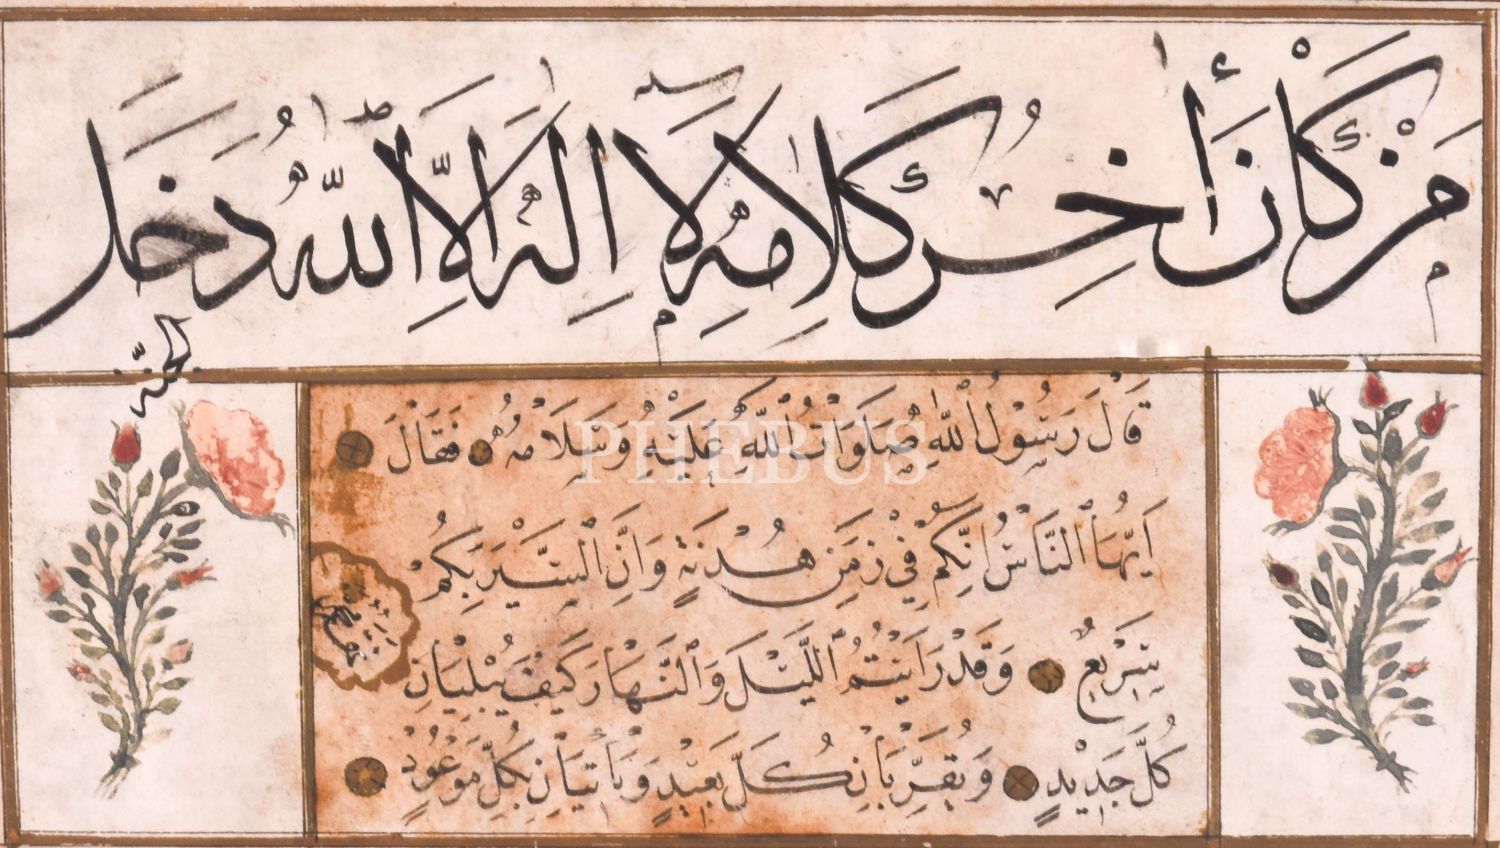 مَنْ كَانَ أٰخِرُ كَلَامِهِ لَا اِلٰهَ اِلَّا اللّٰهُ دَخَلَ
الجنّة
قَالَ رَسُوْلُ اللّٰهِ صَلَوَاتُ اللّٰهِ عَلَيْهِ وَسَلَامُهُ فَقَالَ
اَيُّهَا النَّاسُ اِنَّكُمْ فِيْ زَمَنِ هُدْنَةٍ وَاَنَّ السَّيْرَ بِكُمْ
سَرِيْعٌ وَقَدْ رَاَيْتُمُ اللَّيْلَ وَالنَّهَارَ كَيْفَ يُبْلِيَانِ
كُلَّ جَدِيْدٍ وَيُقَرِّبَانِ كُلَّ بَعِيْدٍ وَيَأْتِيَانِ بِكُلِّ مَوْعُوْدٍ
PHEBUS